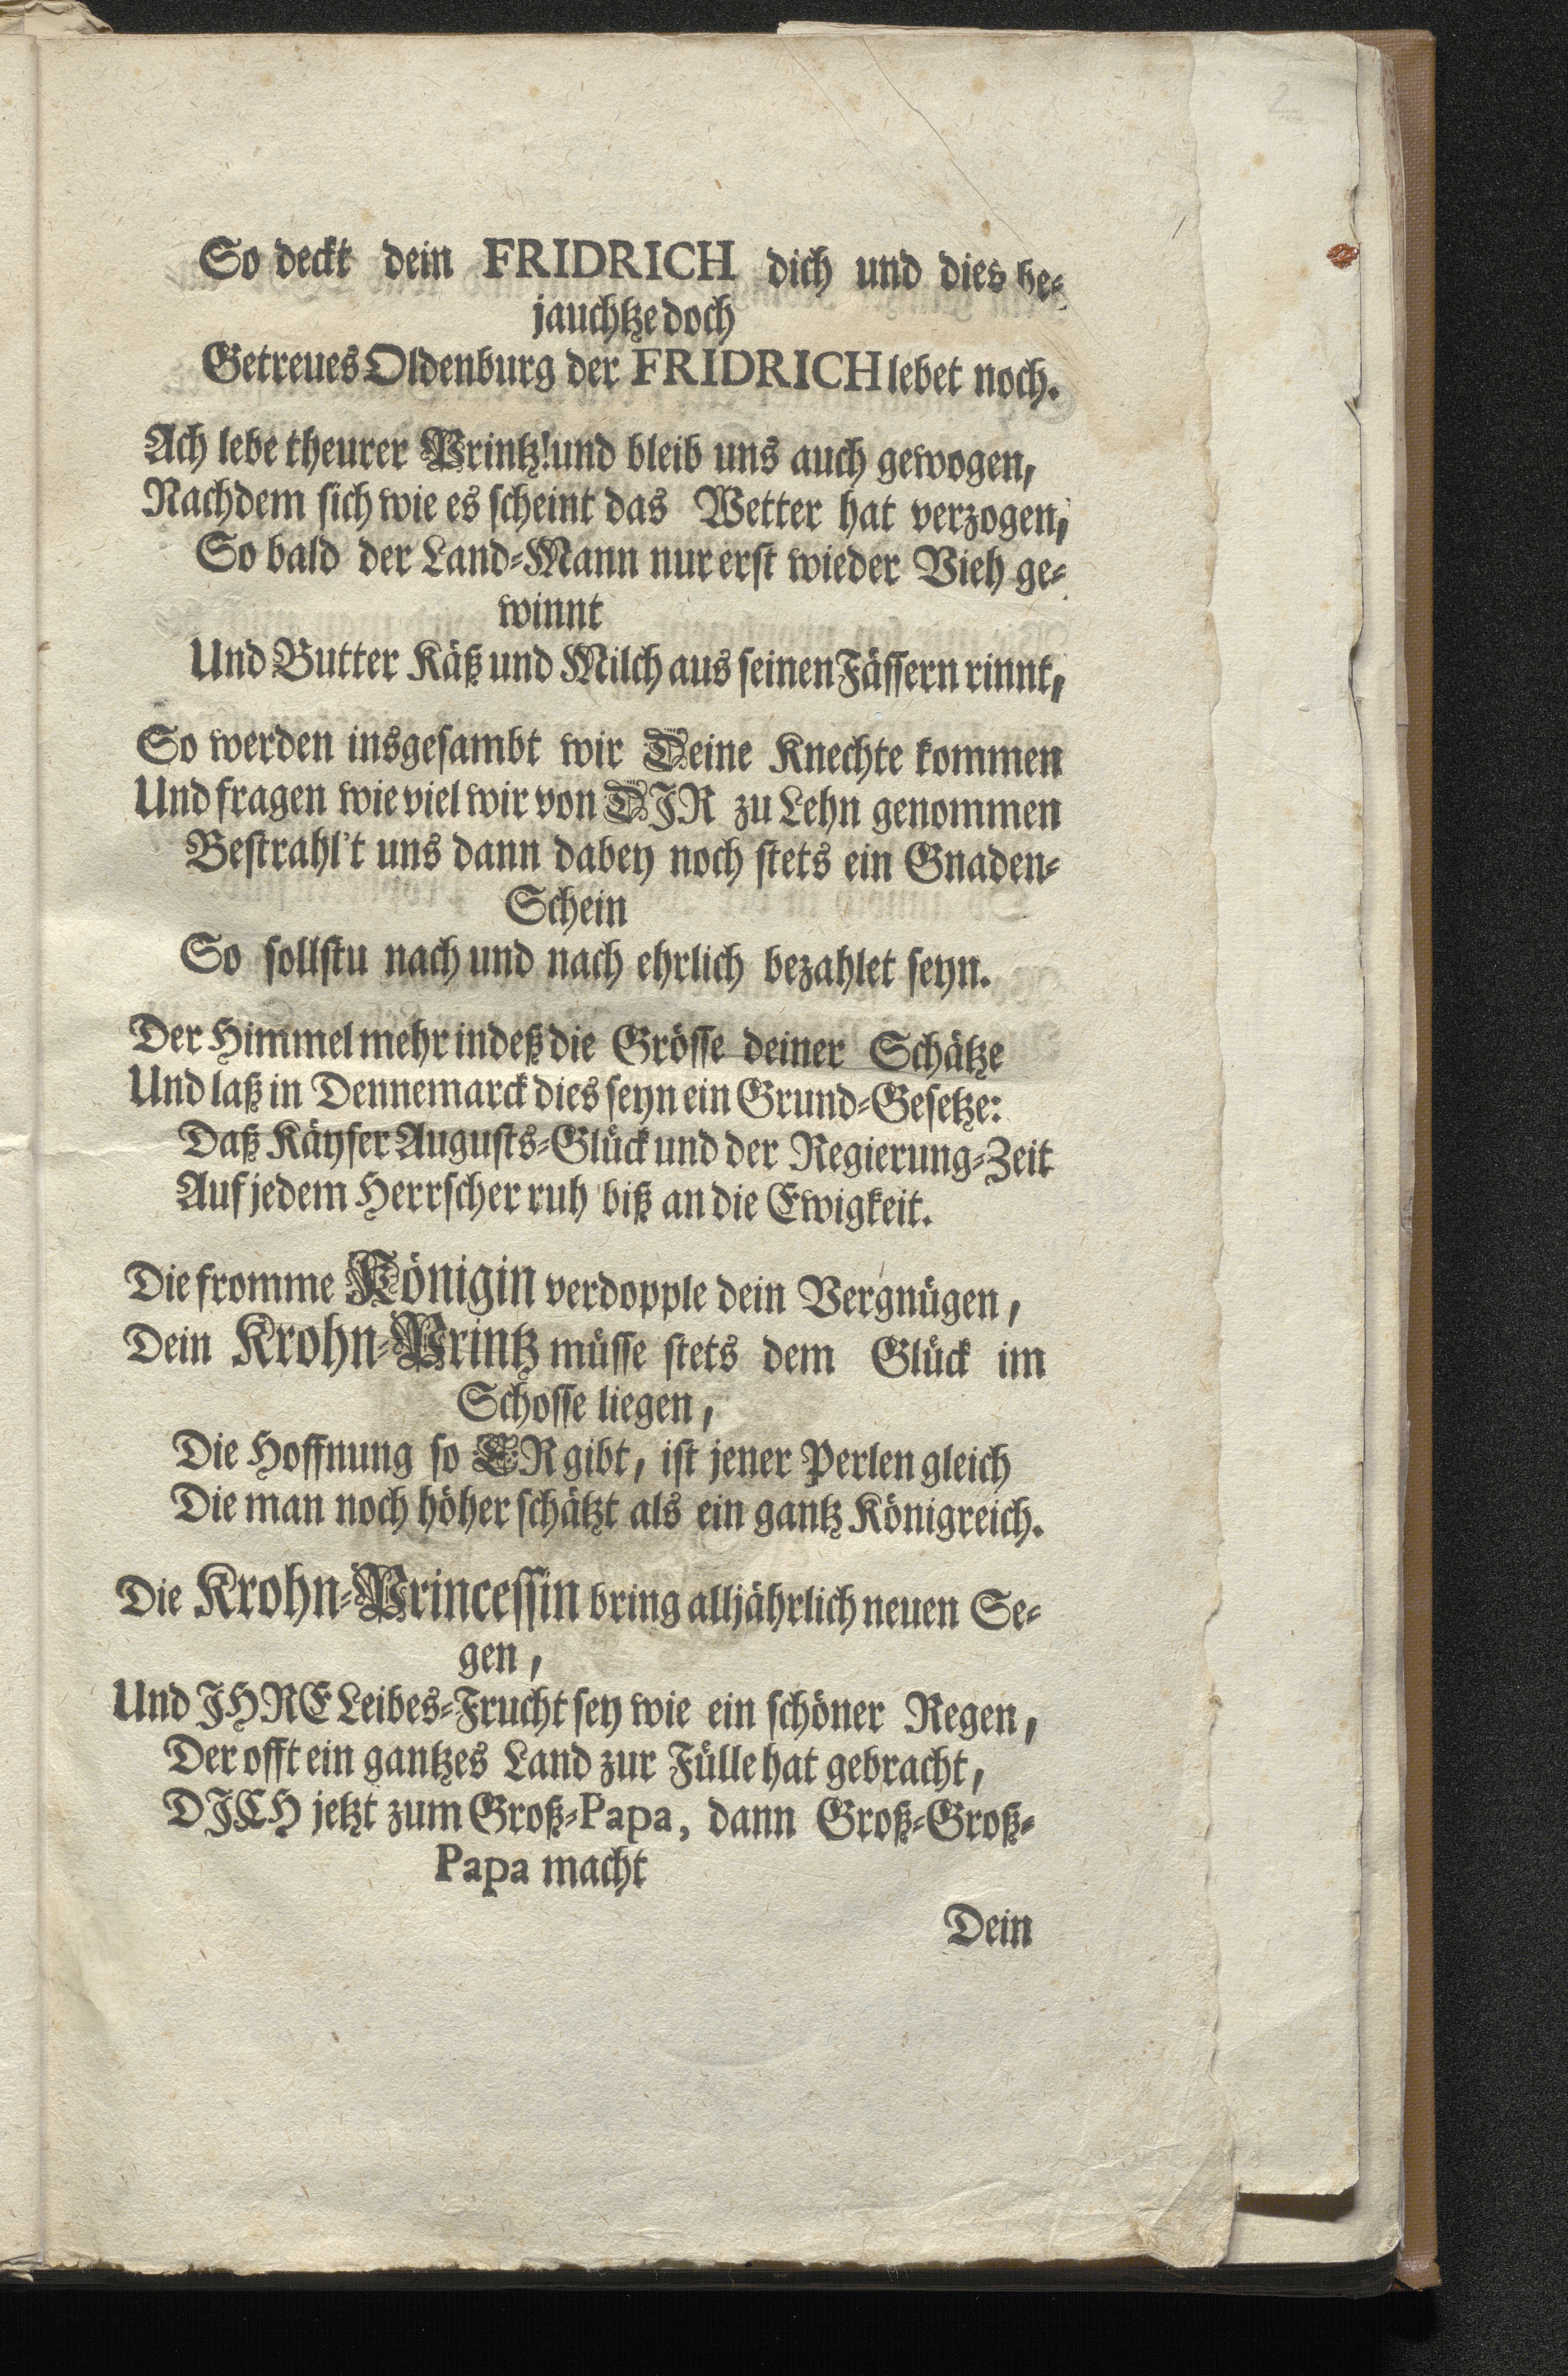 2
So deckt dein FRIDRICH dich und dies be-
jauchtze doch
Getreues Oldenburg der FRIDRICH lebet noch.
Ach lebe theurer Printz! und bleib uns auch gewogen,
Nachdem sich wie es scheint das Wetter hat verzogen,
So bald der Land-Mann nur erst wieder Vieh ge-
winnt
Und Butter Käß und Milch aus seinen Fässern rinnt,
So werden insgesambt wir Deine Knechte kommen
Und fragen wie viel wir von DJR zu Lehn genommen
Bestrahl't uns dann dabey noch stets ein Gnaden-
Schein
So sollstu nach und nach ehrlich bezahlet seyn.
Der Himmel mehr indeß die Grösse deiner Schätze
Und laß in Dennemarck dies seyn ein Grund-Gesetze:
Daß Käyser Augusts-Glück und der Regierung-Zeit
Auf jedem Herrscher ruh biß an die Ewigkeit.
Die fromme Königin verdopple dein Vergnügen,
Dein Krohn-Printz müsse stets dem Glück im
Schosse liegen,
Die Hoffnung so ER gibt, ist jener Perlen gleich
Die man noch höher schätzt als ein gantz Königreich.
Die Krohn-Princessin bring alljährlich neuen Se-
gen,
Und JHRE Leibes-Frucht sey wie ein schöner Regen,
Der offt ein gantzes Land zur Fülle hat gebracht,
DJCH jetzt zum Groß-Papa, dann Groß-Groß-
Papa macht
Dein